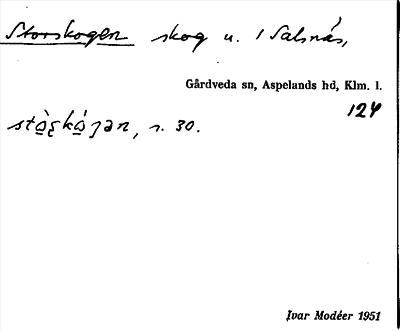 Storskogen skog u. 1 Salsnäs,
Gårdveda sn, Aspelands hd, Klm. l.
124
s. 30.
Ivar Modéer 1951